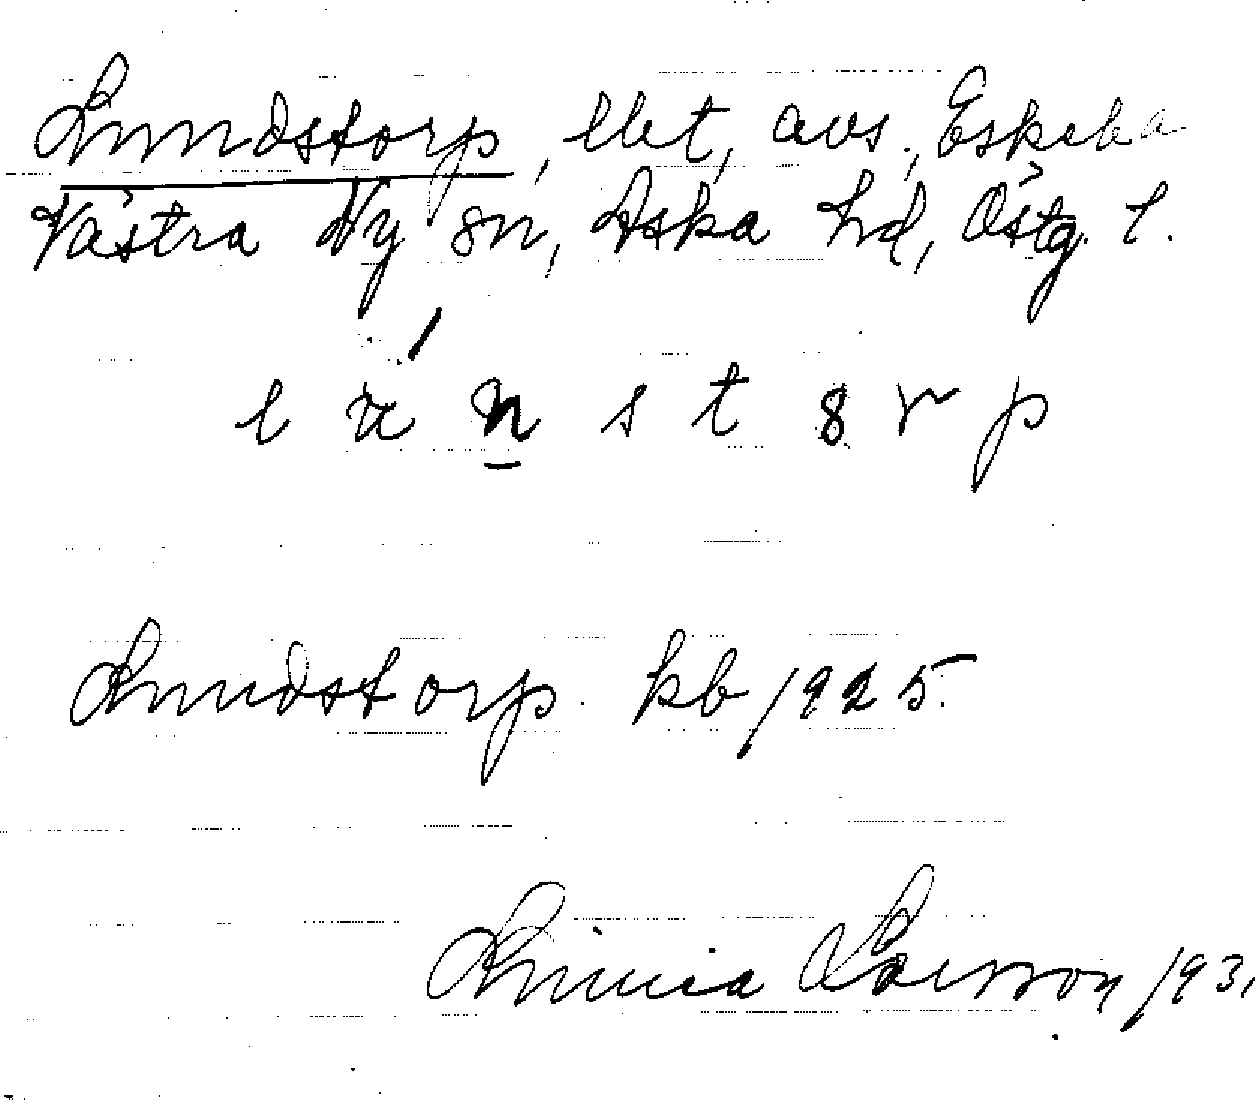 Lundstorp, lht, avs., Eskeba
Västra Ny sn, Aska hd, Östg. l.
l u n s t o r p
Lundstorp. kb 1925.
Linnea Larsson 193